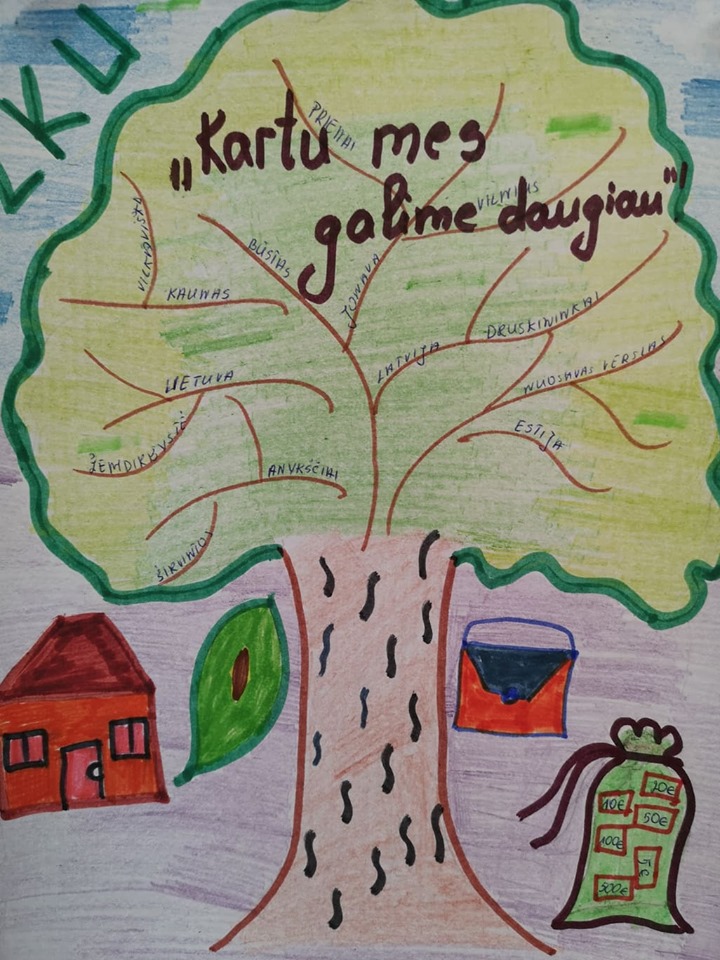 LKU
„Kartu mes
galime daugiau"
PRIENAI
VILNIUS
VILKAVIŠKIS
BŪSTAS
JONAVA
KAUNAS
DRUSKININKAI
LATVIJA
NUOSAVAS VERSLAS
LIETUVA
ESTIJA
ŽEMDIRBYSTĖ
ANYKŠČIAI
ŠIRVINTOS
20€
10€
50€
100€
5€
500€